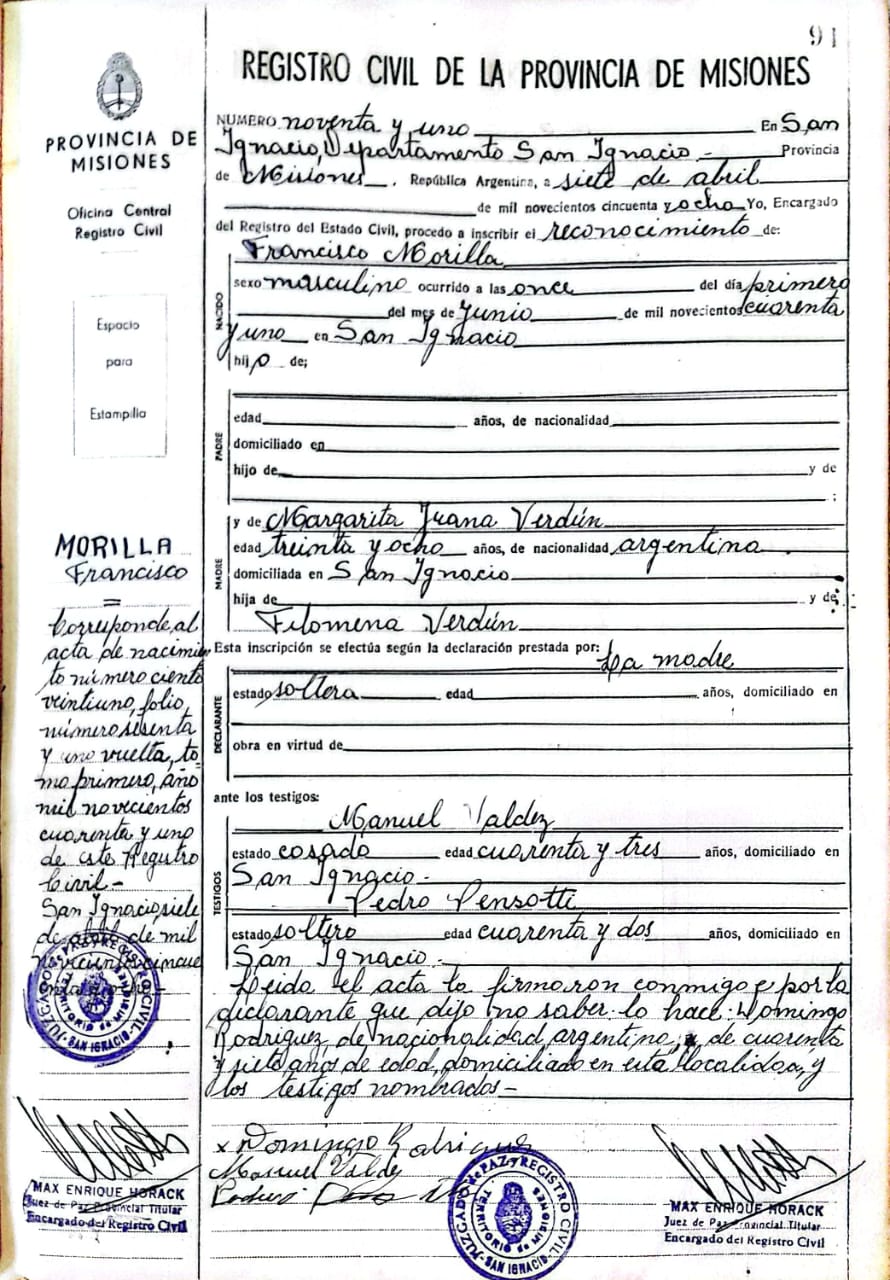 91
REGISTRO CIVIL DE LA PROVINCIA DE MISIONES
PROVINCIA DE
MISIONES
Oficina Central
Registro Civil
Espacio
para
Estampilla
MORILLA
Francisco
Corresponde al
acta de nacimien
to número ciento
veintiuno, folio
número sesenta
y uno vuelta, to
mo primero, año
mil novecientos
cuarenta y uno
de este Registro
Civil -
San Ignacio, siete
de abril de mil
novecientos cincue
JUZGADO DE PAZ Y REGISTRO CIVIL
TERRITORIO de MISIONES
- SAN IGNACIO -
MAX ENRIQUE HORACK
Juez de Paz Provincial Titular
Encargado del Registro Civil
NUMERO noventa y uno En San
Ignacio, Departamento San Ignacio - Provincia
de Misiones. República Argentina, a siete de abril
de mil novecientos cincuenta y ocho Yo, Encargado
del Registro del Estado Civil, procedo a inscribir el reconocimiento de:
Francisco Morilla
NACIDO
sexo masculino ocurrido a las once del día primero
del mes de Junio de mil novecientos cuarenta
y uno en San Ignacio
hijo de;
PADRE
edad años, de nacionalidad
domiciliado en
hijo de y de
;
MADRE
y de Margarita Juana Verdún
edad treinta y ocho años, de nacionalidad argentina.
domiciliada en San Ignacio
hija de y de;
Filomena Verdún
Esta inscripción se efectúa según la declaración prestada por: La madre
DECLARANTE
estado soltera edad años, domiciliado en
obra en virtud de
ante los testigos:
TESTIGOS
Manuel Valdez
estado casado edad cuarenta y tres años, domiciliado en
San Ignacio -
Pedro Pensotti
estado soltero edad cuarenta y dos años, domiciliado en
San Ignacio -
Leída el acta la firmaron conmigo e por la
declarante que dijo no saber lo hace: Domingo
Rodriguez de nacionalidad argentina, de cuarenta
y siete años de edad, domiciliado en esta localidad, y
los testigos nombrados -
x Domingo Rodriguez
Manuel Valdez
JUZGADO de PAZ y REGISTRO CIVIL
TERRITORIO de MISIONES
- SAN IGNACIO -
MAX ENRIQUE HORACK
Juez de Paz Provincial Titular
Encargado del Registro Civil